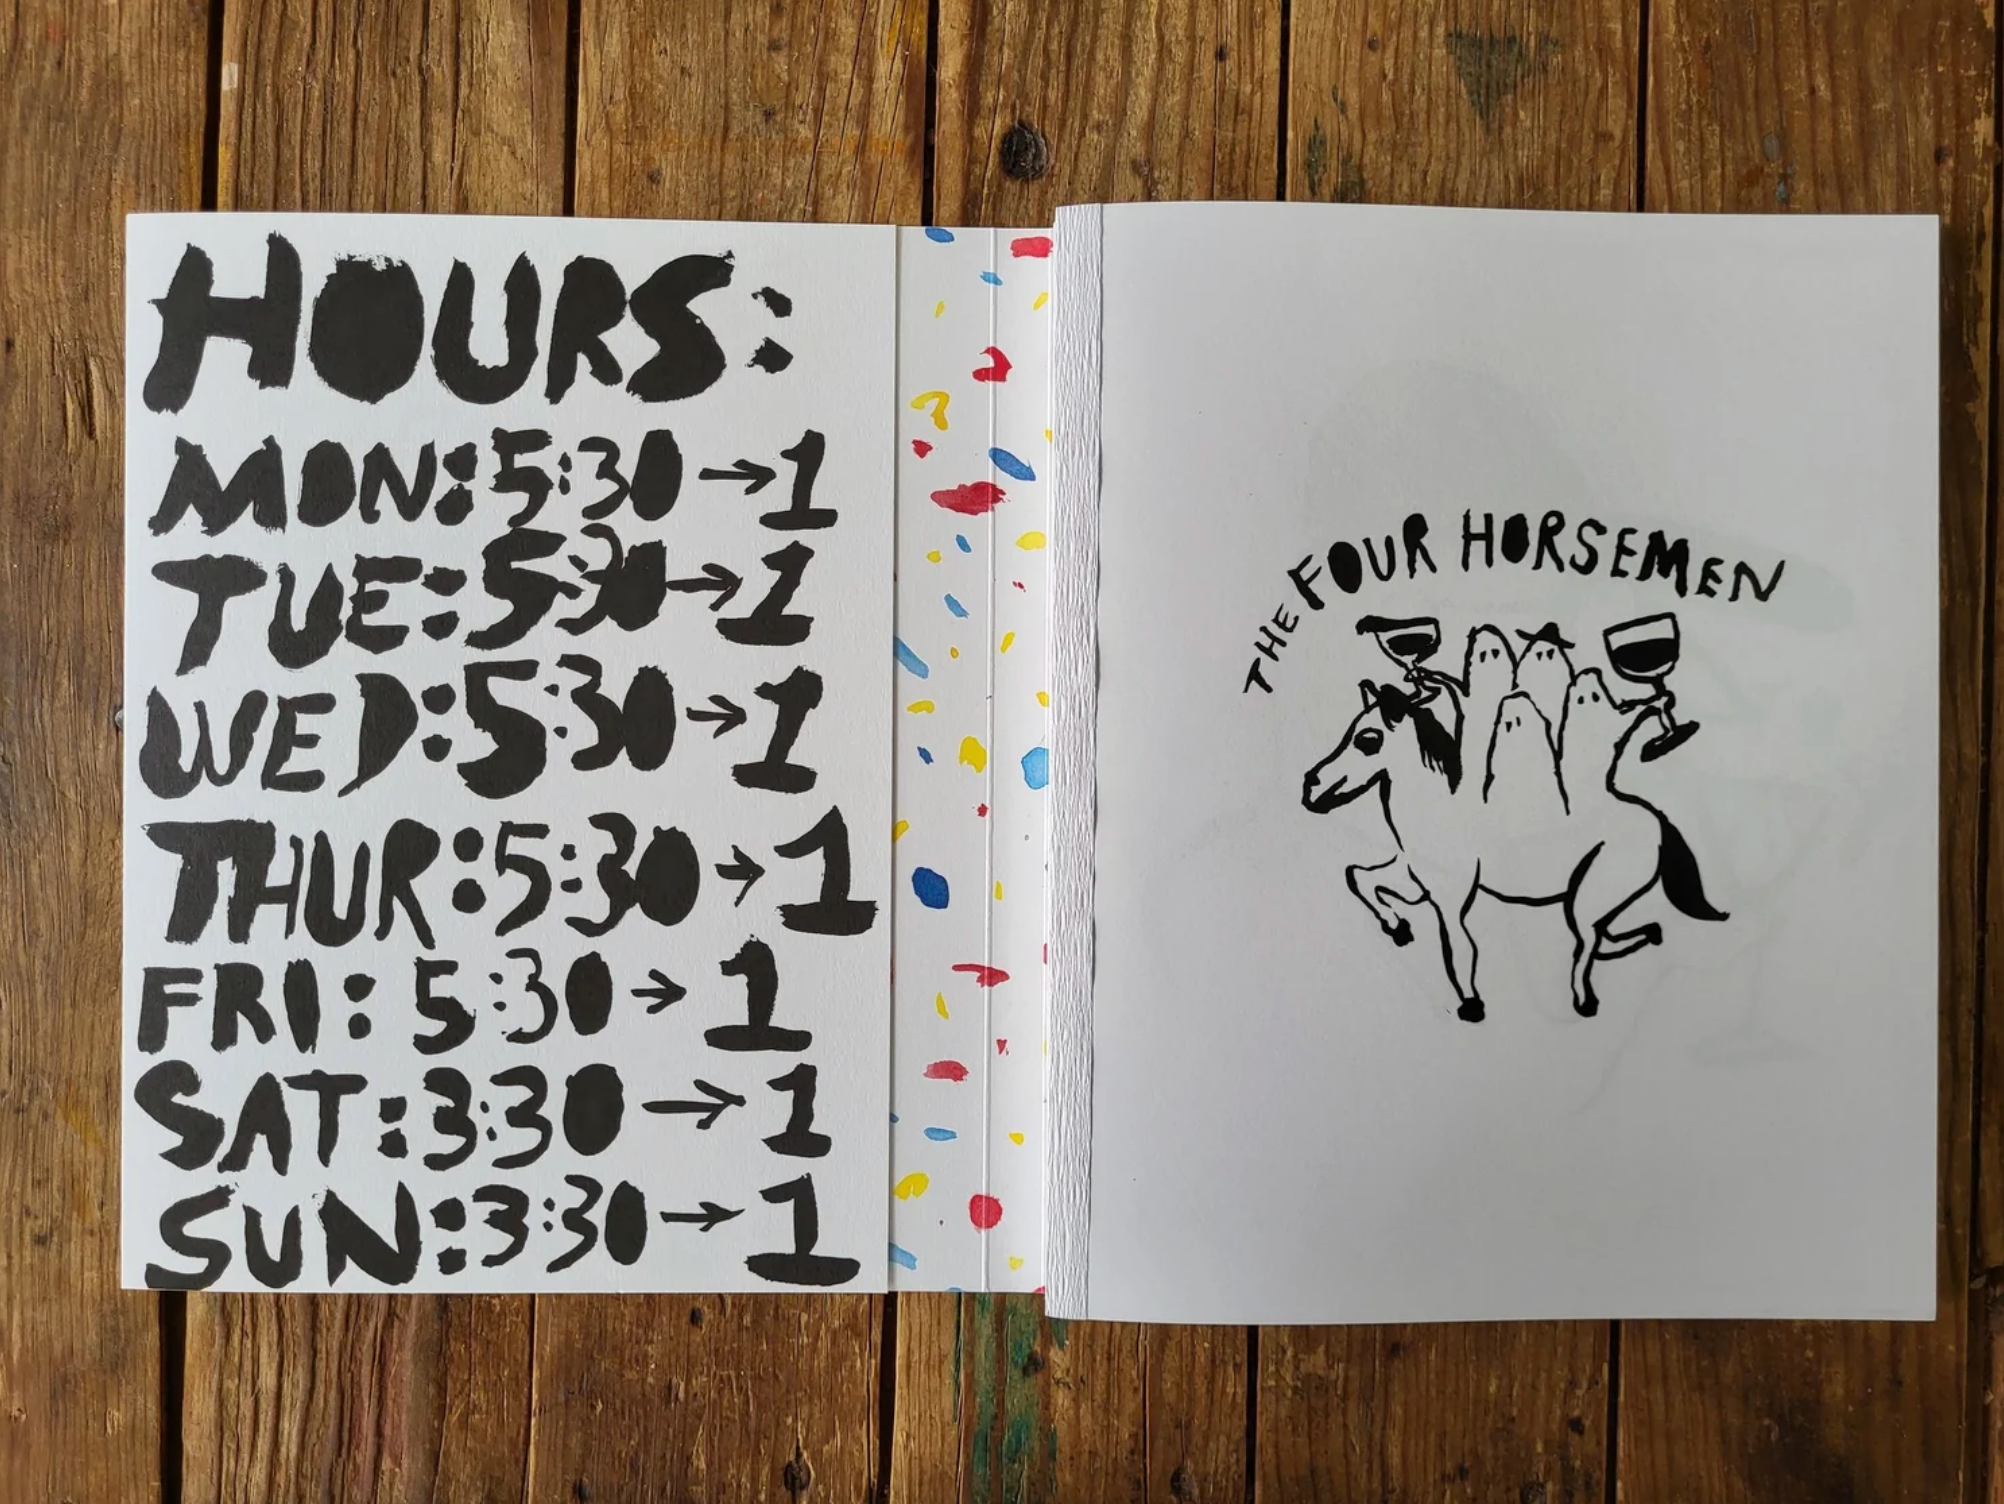 HOURS:
MON: 5:30 → 1
TUE: 5:30 → 1
WED: 5:30 → 1
THUR: 5:30 → 1
FRI: 5:30 → 1
SAT: 3:30 → 1
SUN: 3:30 → 1
THE FOUR HORSEMEN